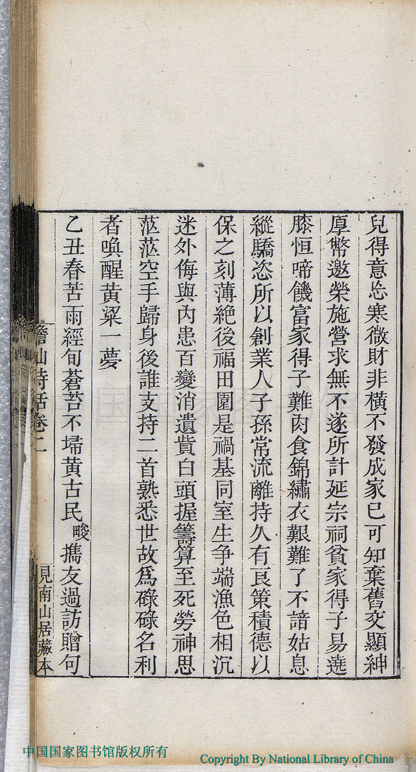 兒得意忘寒微財非橫不發成家已可知棄舊交顯紳
厚幣邀榮施營求無不遂所計延宗祠貧家得子易遶
膝恒啼饑富家得子難肉食錦繡衣艱難了不諳姑息
縱驕恣所以創業人子孫常流離持久有良策積德以
保之刻薄絕後福田園是禍基同室生爭端漁色相沉
迷外侮與內患百變消遺貲白頭握籌算至死勞神思
茫茫空手歸身後誰支持二首熟悉世故爲碌碌名利
者喚醒黃粱一夢
乙丑春苦雨經旬蒼苔不埽黃古民畯攜友過訪贈句
山詩話卷二
見南山居藏本
中国国家图书馆版权所有
Copyright By National Library of China